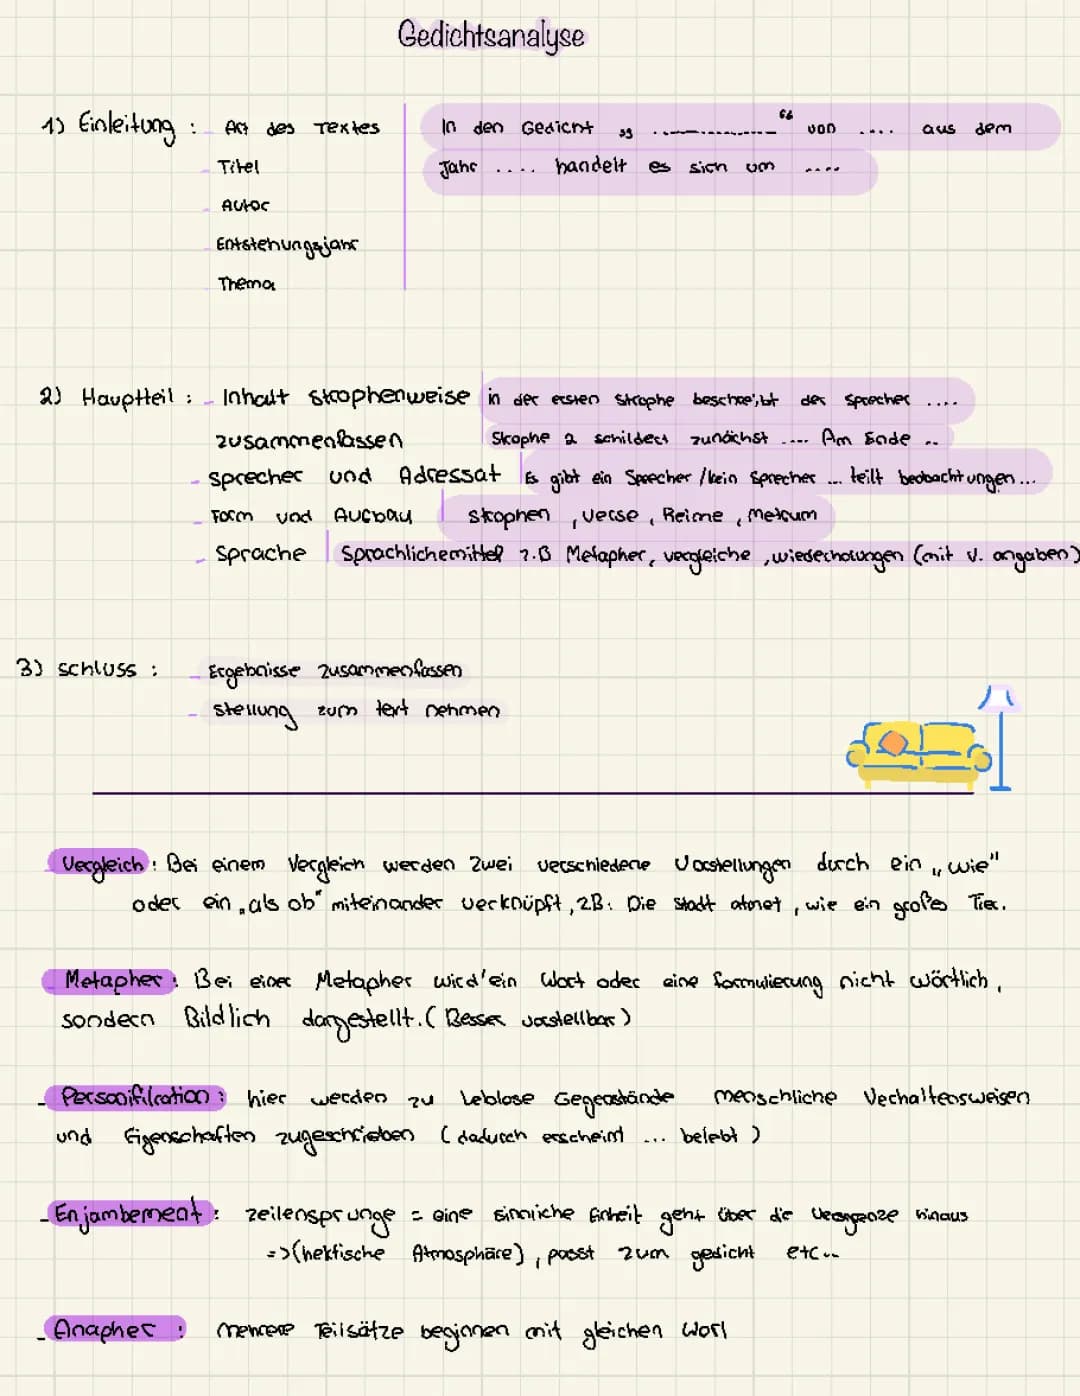 Gedichtsanalyse
1) Einleitung : - Art des Textes
In den Gedicht „ .------------ “ von .... aus dem
- Titel
Jahr .... handelt es sich um ....
- Autor
- Entstehungsjahr
- Thema
2) Hauptteil : - Inhalt strophenweise in der ersten Strophe beschreibt der Sprecher ....
zusammenfassen Strophe 2 schildert zunächst .... Am Ende ..
- Sprecher und Adressat Es gibt ein Sprecher / kein Sprecher ... teilt beobachtungen ...
- Form und Aufbau Strophen , Verse , Reime , Metrum
- Sprache Sprachlichemittel z.B Metapher, vergleiche , wiederholungen (mit V. angaben)
3) Schluss : - Ergebnisse zusammenfassen
- Stellung zum text nehmen
Vergleich : Bei einem Vergleich werden zwei verschiedene Vorstellungen durch ein „wie"
oder ein „als ob" miteinander verknüpft , zB: Die Stadt atmet , wie ein großes Tier.
- Metapher : Bei einer Metapher wird ein Wort oder eine formulierung nicht wörtlich ,
sondern Bildlich dargestellt. ( Besser vorstellbar )
- Personifikation : hier werden zu Leblose Gegenstände menschliche Verhaltensweisen
und Eigenschaften zugeschrieben ( dadurch erscheint ... belebt )
- Enjambement : Zeilensprünge = eine sinnliche Einheit geht über die Versgrenze hinaus
=> (hektische Atmosphäre) , passt zum gedicht etc..
- Anapher : mehrere Teilsätze beginnen mit gleichen Wort